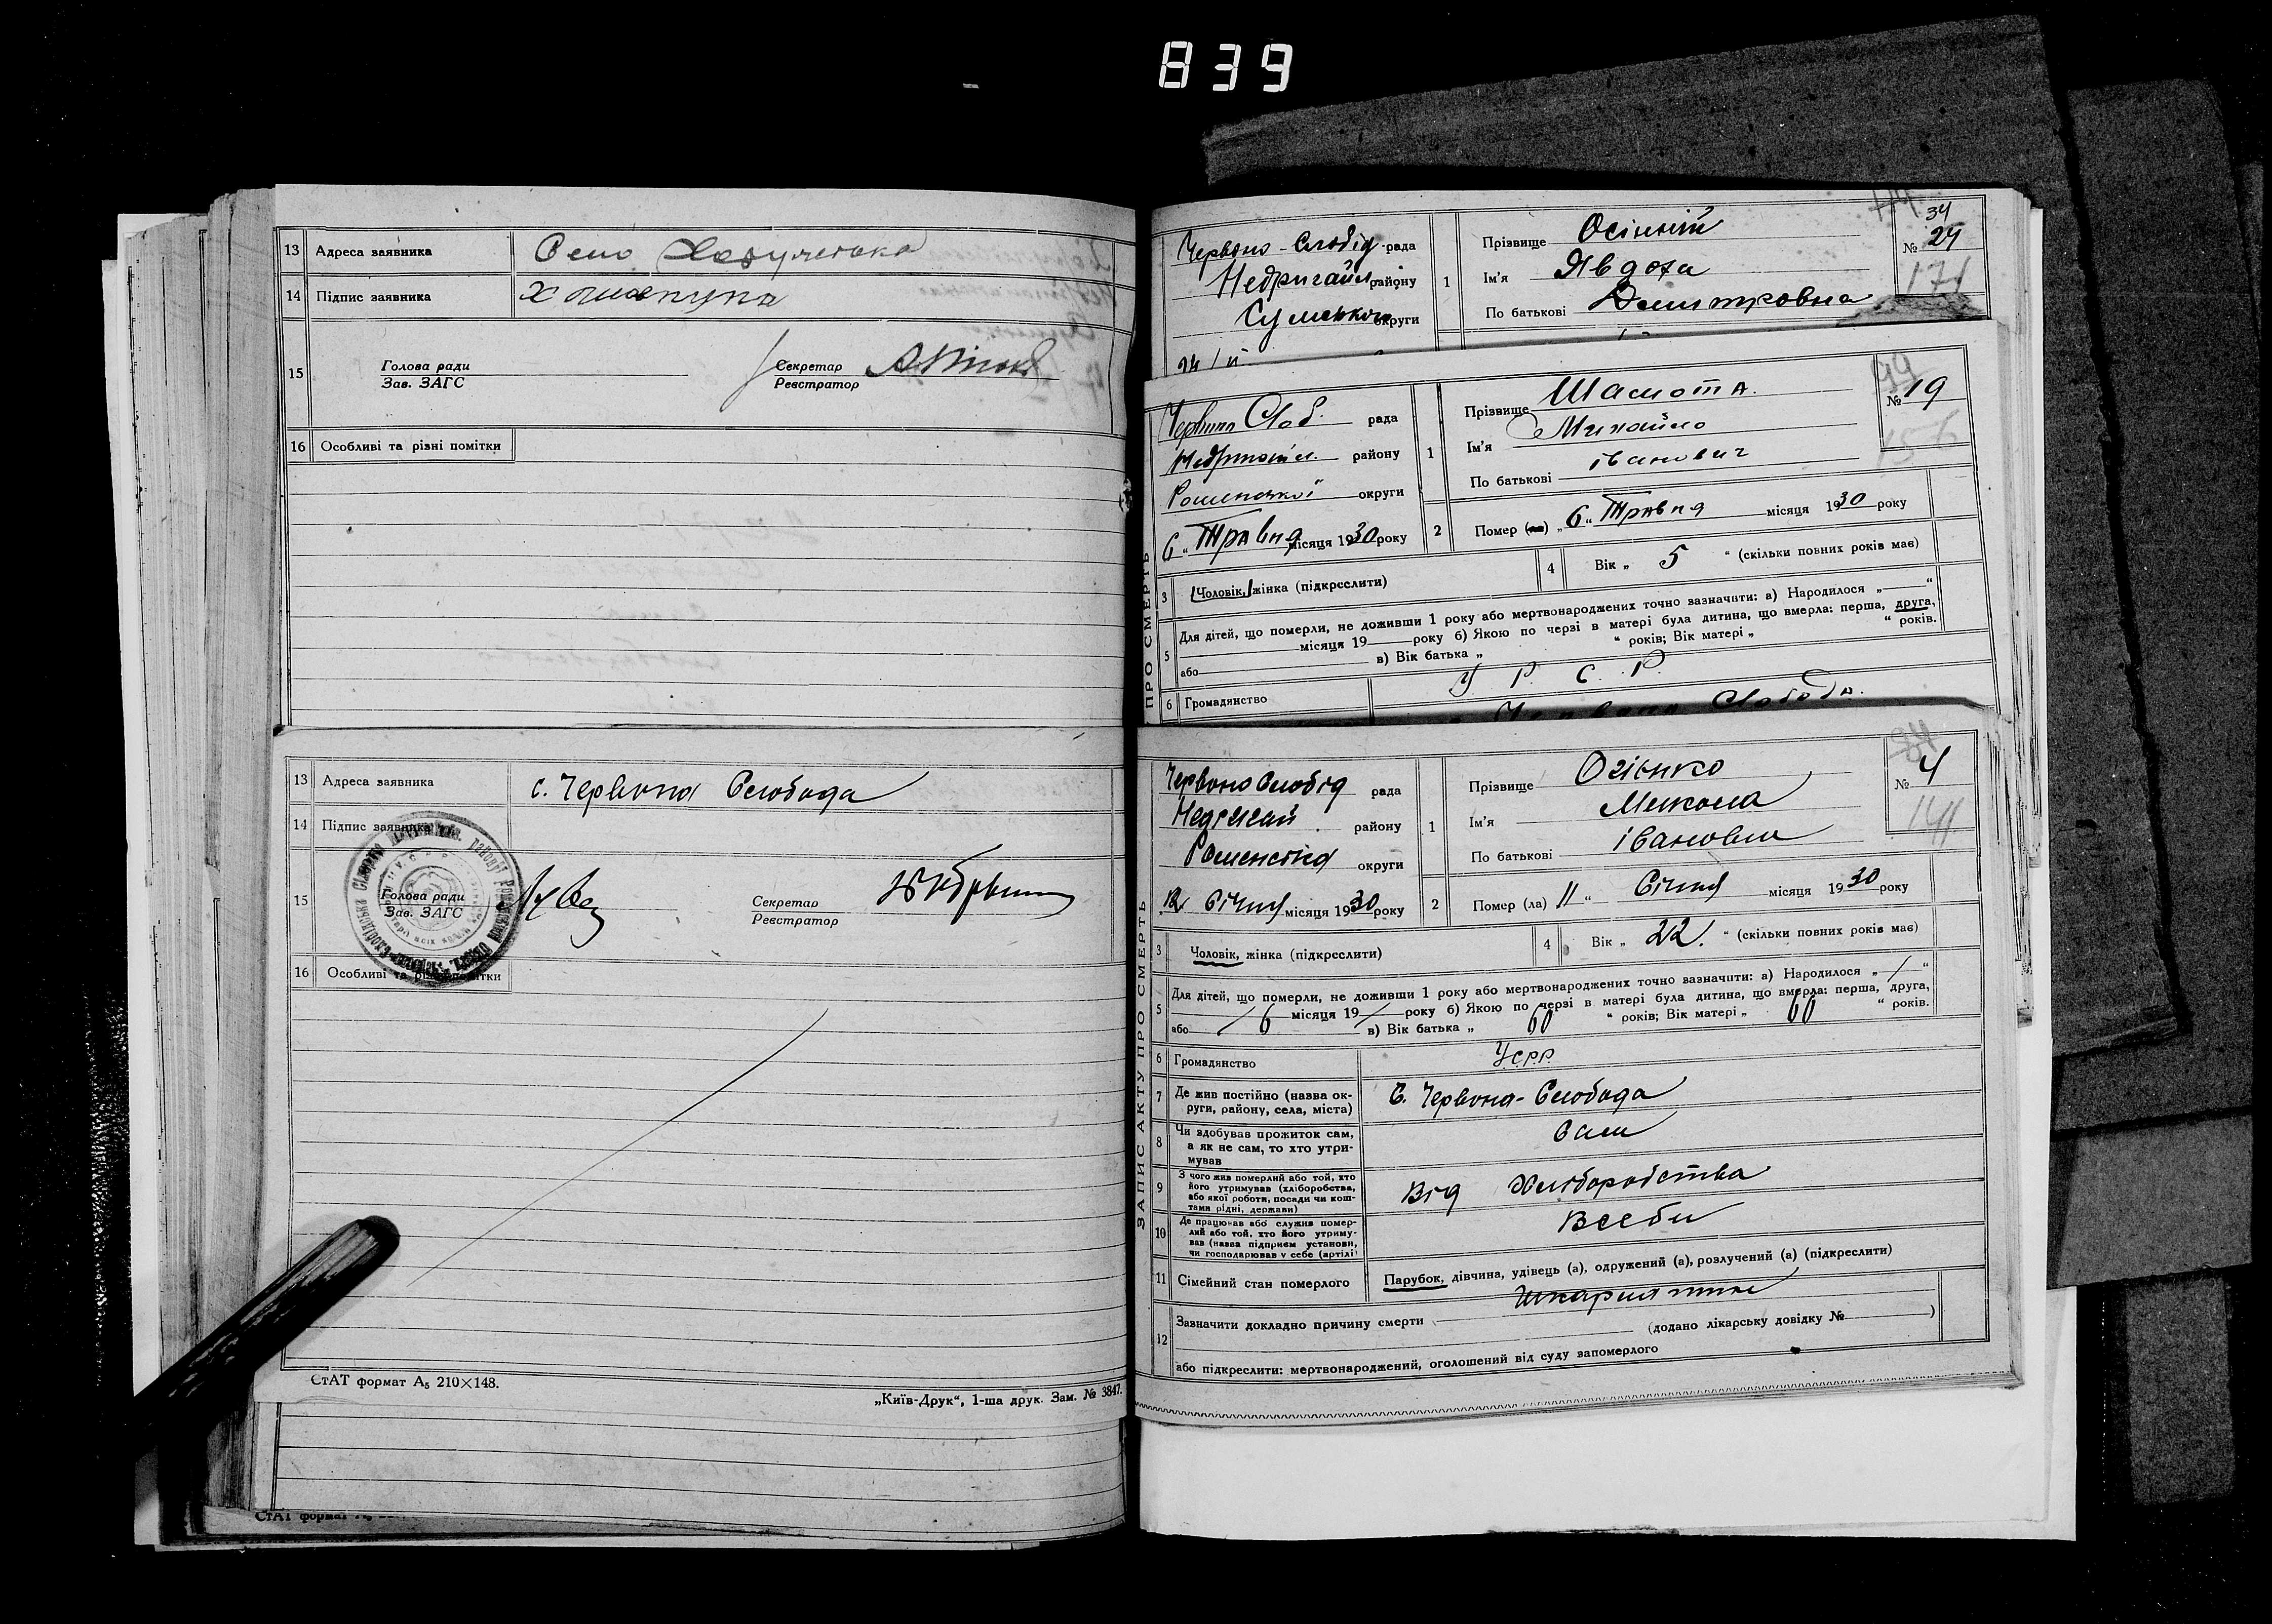 839
13 Адреса заявника Село
14 Підпис заявника
15 Голова ради Секретар
Зав. ЗАГС Реєстратор
16 Особливі та різні помітки
13 Адреса заявника с. Червона Слобода
14 Підпис заявника
15 Голова ради Секретар
Зав. ЗАГС Реєстратор
16 Особливі та різні помітки
СтАТ формат А₅ 210×148.
„Київ-Друк“, 1-ша друк. Зам. № 3847.
СтАТ формат
Червоно-Слобід рада
Недригайл району
округи
1 Прізвище Осінній
Ім'я Явдоха
По батькові Дмитровна
34
№ 24
171
Слоб. рада
району
Роменської округи
6 „ Травня місяця 1930 року
1 Прізвище Шамота
Ім'я Михайло
По батькові іванович
№ 19
156
2 Помер (ла) „ 6 “ Травня місяця 1930 року
3 Чоловік, жінка (підкреслити)
4 Вік „ 5 “ (скільки повних років має)
5 Для дітей, що померли, не доживши 1 року або мертвонароджених точно зазначити: а) Народилося „ “
місяця 19 року б) Якою по черзі в матері була дитина, що вмерла: перша, друга,
або в) Вік батька „ “ років; Вік матері „ “ років.
6 Громадянство У Р С Р
Червона Слобода.
ЗАПИС АКТУ ПРО СМЕРТЬ
ЧервоноСлобід рада
Недригай району
округи
12 Січня місяця 1930 року
1 Прізвище Огієнко
Ім'я Микола
По батькові іванович
№ 4
141
2 Помер (ла) 11 “ Січня місяця 1930 року
3 Чоловік, жінка (підкреслити)
4 Вік „ 22. “ (скільки повних років має)
5 Для дітей, що померли, не доживши 1 року або мертвонароджених точно зазначити: а) Народилося „ “
6 місяця 19 року б) Якою по черзі в матері була дитина, що вмерла: перша, друга,
або в) Вік батька „ 60 “ років; Вік матері „ 60 “ років.
6 Громадянство УСРР
7 Де жив постійно (назва округи, району, села, міста) С. Червона-Слобода
8 Чи здобував прожиток сам, а як не сам, то хто утримував Сам
9 З чого жив померлий або той, хто його утримував (хліборобства, або якої роботи, посади чи коштами рідні, держави) Від Хліборобства
10 Де працював або служив померлий або той, хто його утримував (назва підприєм установи, чи господарював у себе (артілі) Всеби
11 Сімейний стан померлого Парубок, дівчина, удівець (а), одружений (а), розлучений (а) (підкреслити)
12 Зазначити докладно причину смерти Шкарлятина
(додано лікарську довідку № )
або підкреслити: мертвонароджений, оголошений від суду запомерлого